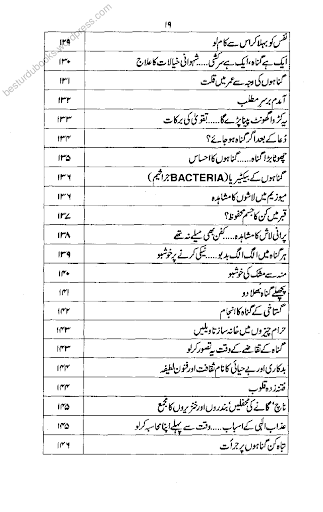 besturdubooks.wordpress.com
۱۹
نفس کو بہلا کر اس سے کام لو ۱۲۹
ایک ہے گناہ، ایک ہے سرکشی.....شہوانی خیالات کا علاج ۱۳۰
گناہوں کی وجہ سے عمر میں قلت ۱۳۱
آمدم برسر مطلب ۱۳۲
یہ کڑوا گھونٹ پینا پڑے گا.....تقویٰ کی برکات ۱۳۳
دُعا کے بعد اگر گناہ ہو جائے؟ ۱۳۴
چھوٹا بڑا گناہ.....گناہوں کا احساس ۱۳۵
گناہوں کے بیکٹیریا (BACTERIA جراثیم) ۱۳۶
میوزیم میں لاشوں کا مشاہدہ ۱۳۶
قبر میں کن کا جسم محفوظ؟ ۱۳۷
پرانی لاش کا مشاہدہ.....کفن بھی میلے نہ تھے ۱۳۸
ہر گناہ میں الگ الگ بدبو.....نیکی کرنے پر خوشبو ۱۳۹
منہ سے مشک کی خوشبو ۱۴۰
پچھلے گناہ بھلا دو ۱۴۱
گستاخی کے گناہ کا انجام ۱۴۲
حرام چیزوں میں خانہ ساز تاویلیں ۱۴۳
گناہ کے تقاضے کے وقت یہ تصور کر لو ۱۴۳
بدکاری اور بے حیائی کا نام ثقافت اور فنون لطیفہ ۱۴۴
فتنہ زدہ قلوب ۱۴۴
ناچ، گانے کی محفلیں بندروں اور خنزیروں کا مجمع ۱۴۵
عذاب الٰہی کے اسباب.....وقت سے پہلے اپنا محاسبہ کر لو ۱۴۵
تباہ کن گناہوں پر جرأت ۱۴۶